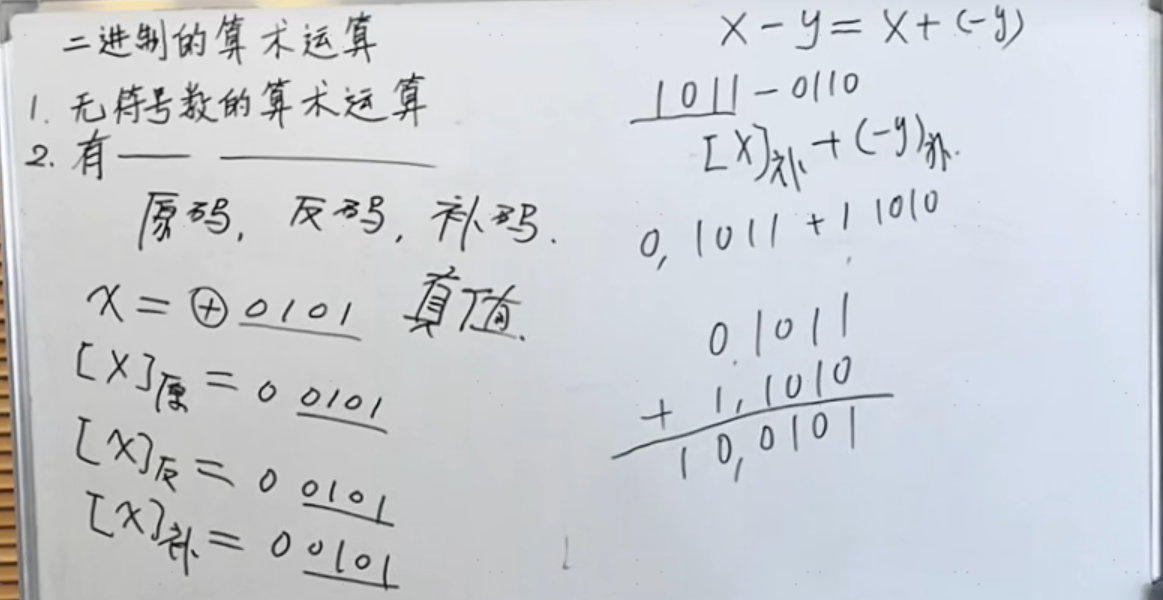 二进制的算术运算
1. 无符号数的算术运算
2. 有—— ————
原码, 反码, 补码.
x = ⊕ 0101 真值.
[X]原 = 0 0101
[X]反 = 0 0101
[X]补 = 0 0101
X - y = X + (-y)
1011 - 0110
[X]补 + (-y)补.
0, 1011 + 1 1010
0.1011
+ 1,1010
10,0101